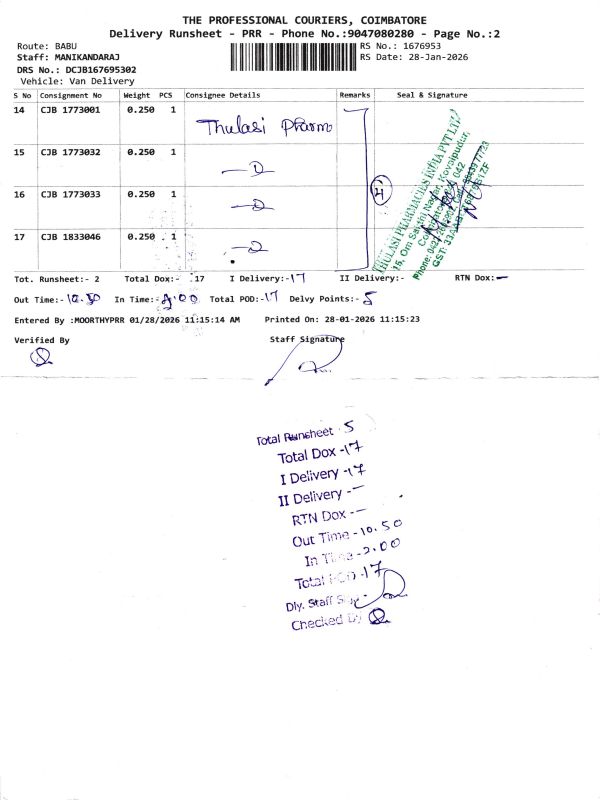 THE PROFESSIONAL COURIERS, COIMBATORE
Delivery Runsheet - PRR - Phone No.:9047080280 - Page No.:2
Route: BABU
Staff: MANIKANDARAJ
DRS No.: DCJB167695302
Vehicle: Van Delivery
RS No.: 1676953
RS Date: 28-Jan-2026
S No Consignment No Weight PCS Consignee Details Remarks Seal & Signature
14 CJB 1773001 0.250 1 Thulasi Pharm
15 CJB 1773032 0.250 1
16 CJB 1773033 0.250 1
17 CJB 1833046 0.250 1
4
THULASI PHARMACIES INDIA PVT LTD
15, Om Sakthi Nagar, Kovaipudur,
Coimbatore - 641 042
Tot. Runsheet:- 2 Total Dox:- 17 I Delivery:-17 II Delivery:- RTN Dox:-
Out Time:- 10.50 In Time:- 2.00 Total POD:-17 Delvy Points:- 5
Entered By :MOORTHYPRR 01/28/2026 11:15:14 AM Printed On: 28-01-2026 11:15:23
Verified By Staff Signature
Total Runsheet - 5
Total Dox -17
I Delivery -17
II Delivery --
RTN Dox --
Out Time -10.50
In Time -2.00
Total POD -17
Dly. Staff Sig -
Checked By